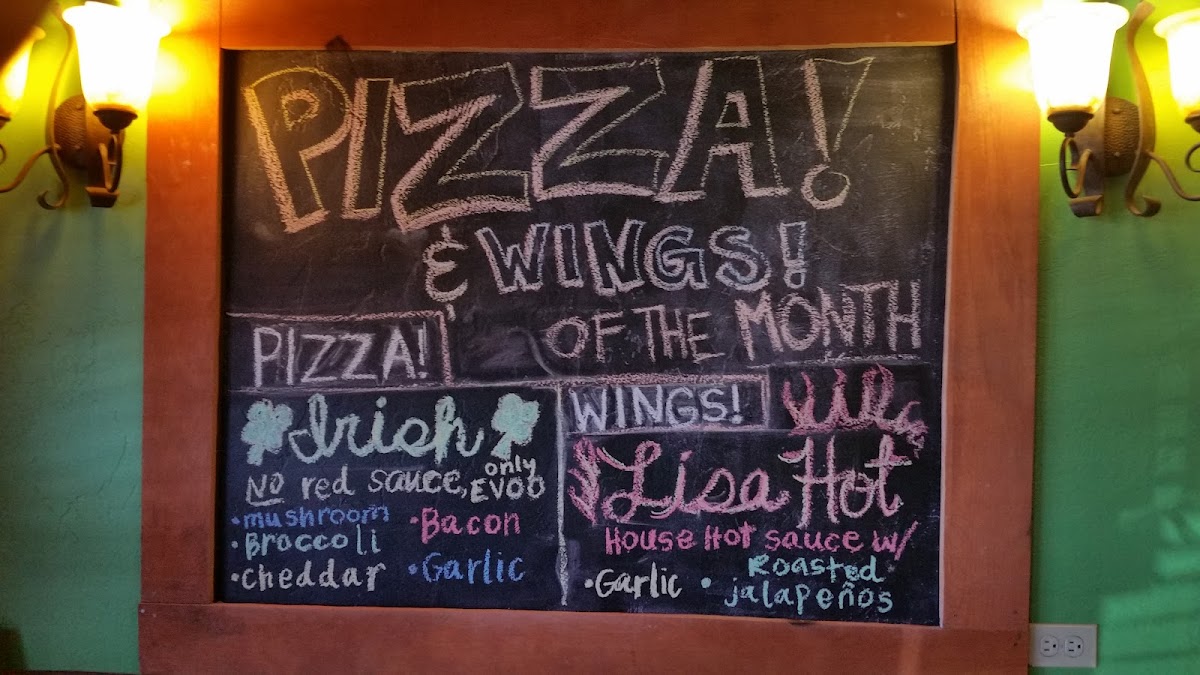 PIZZA!
& WINGS!
OF THE MONTH
PIZZA!
Irish
NO red sauce, only
EVOO
• mushroom
• Broccoli
• cheddar
• Bacon
• Garlic
WINGS!
Lisa Hot
House Hot sauce w/
• Garlic
• Roasted
jalapeños